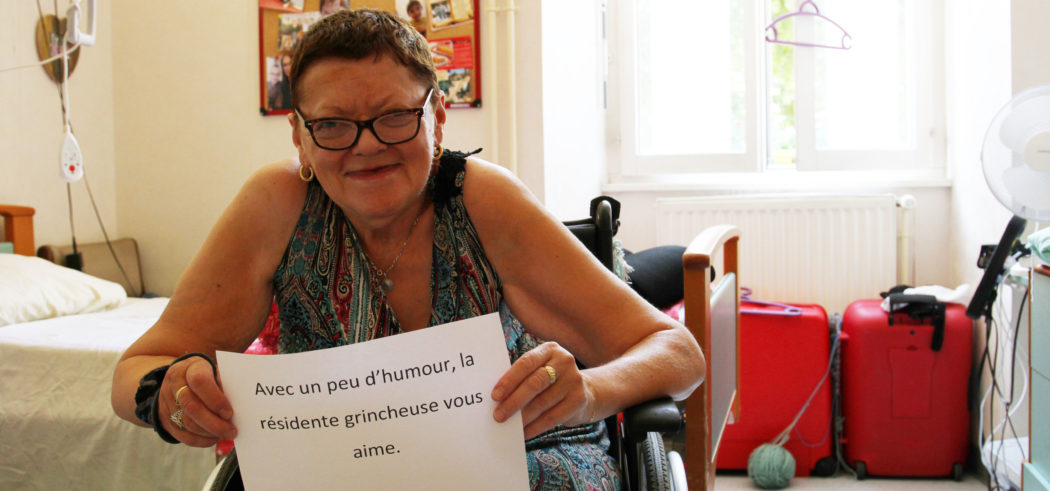 Avec un peu d’humour, la
résidente grincheuse vous
aime.